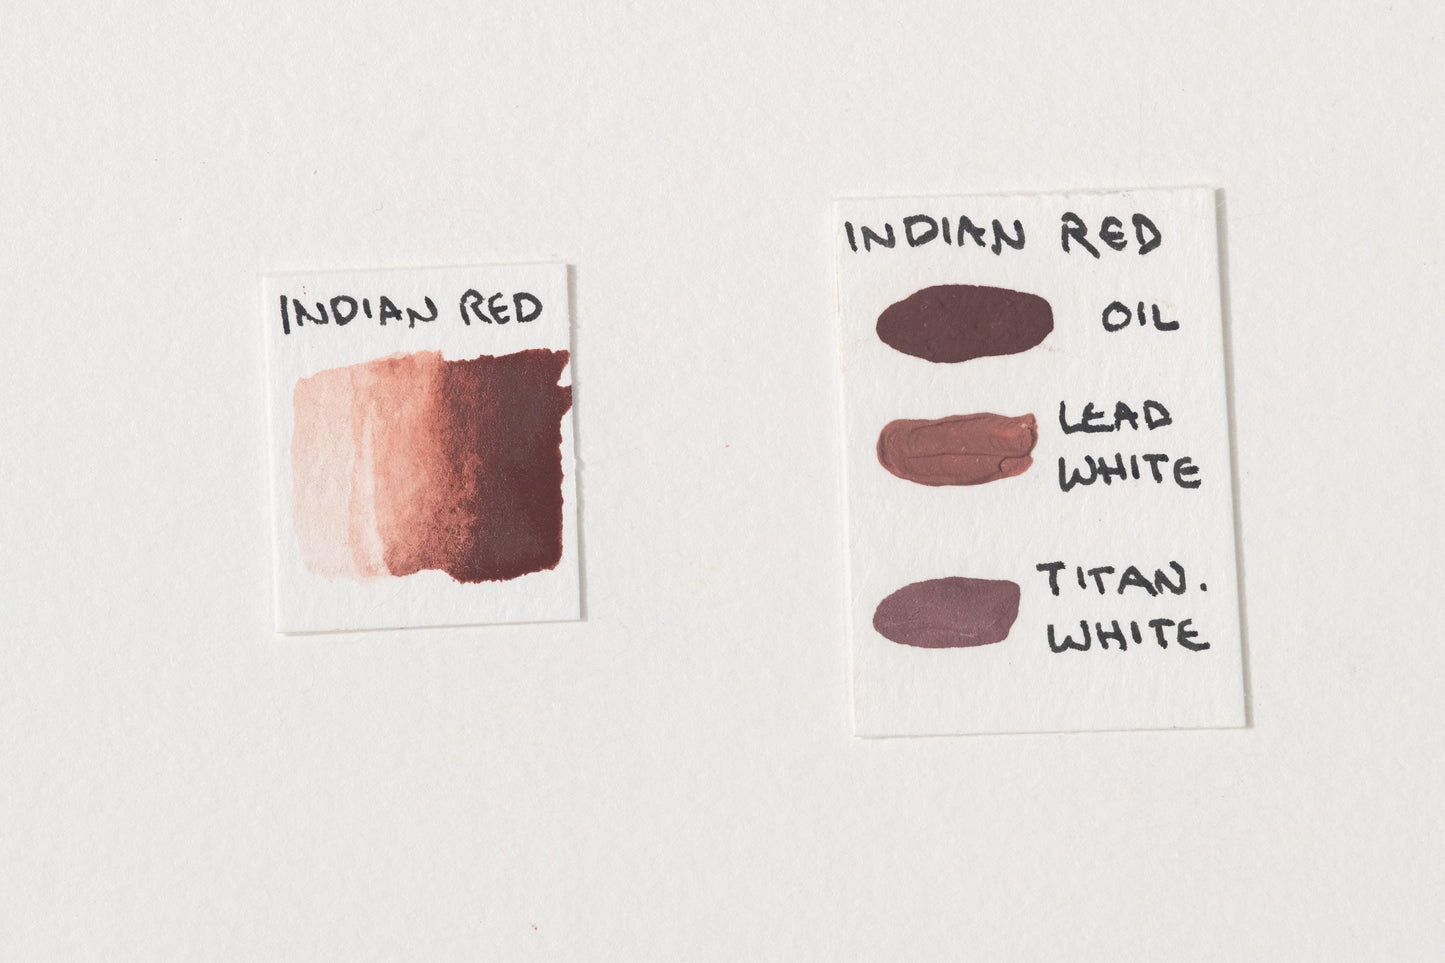 INDIAN RED
INDIAN RED
OIL
LEAD
WHITE
TITAN.
WHITE